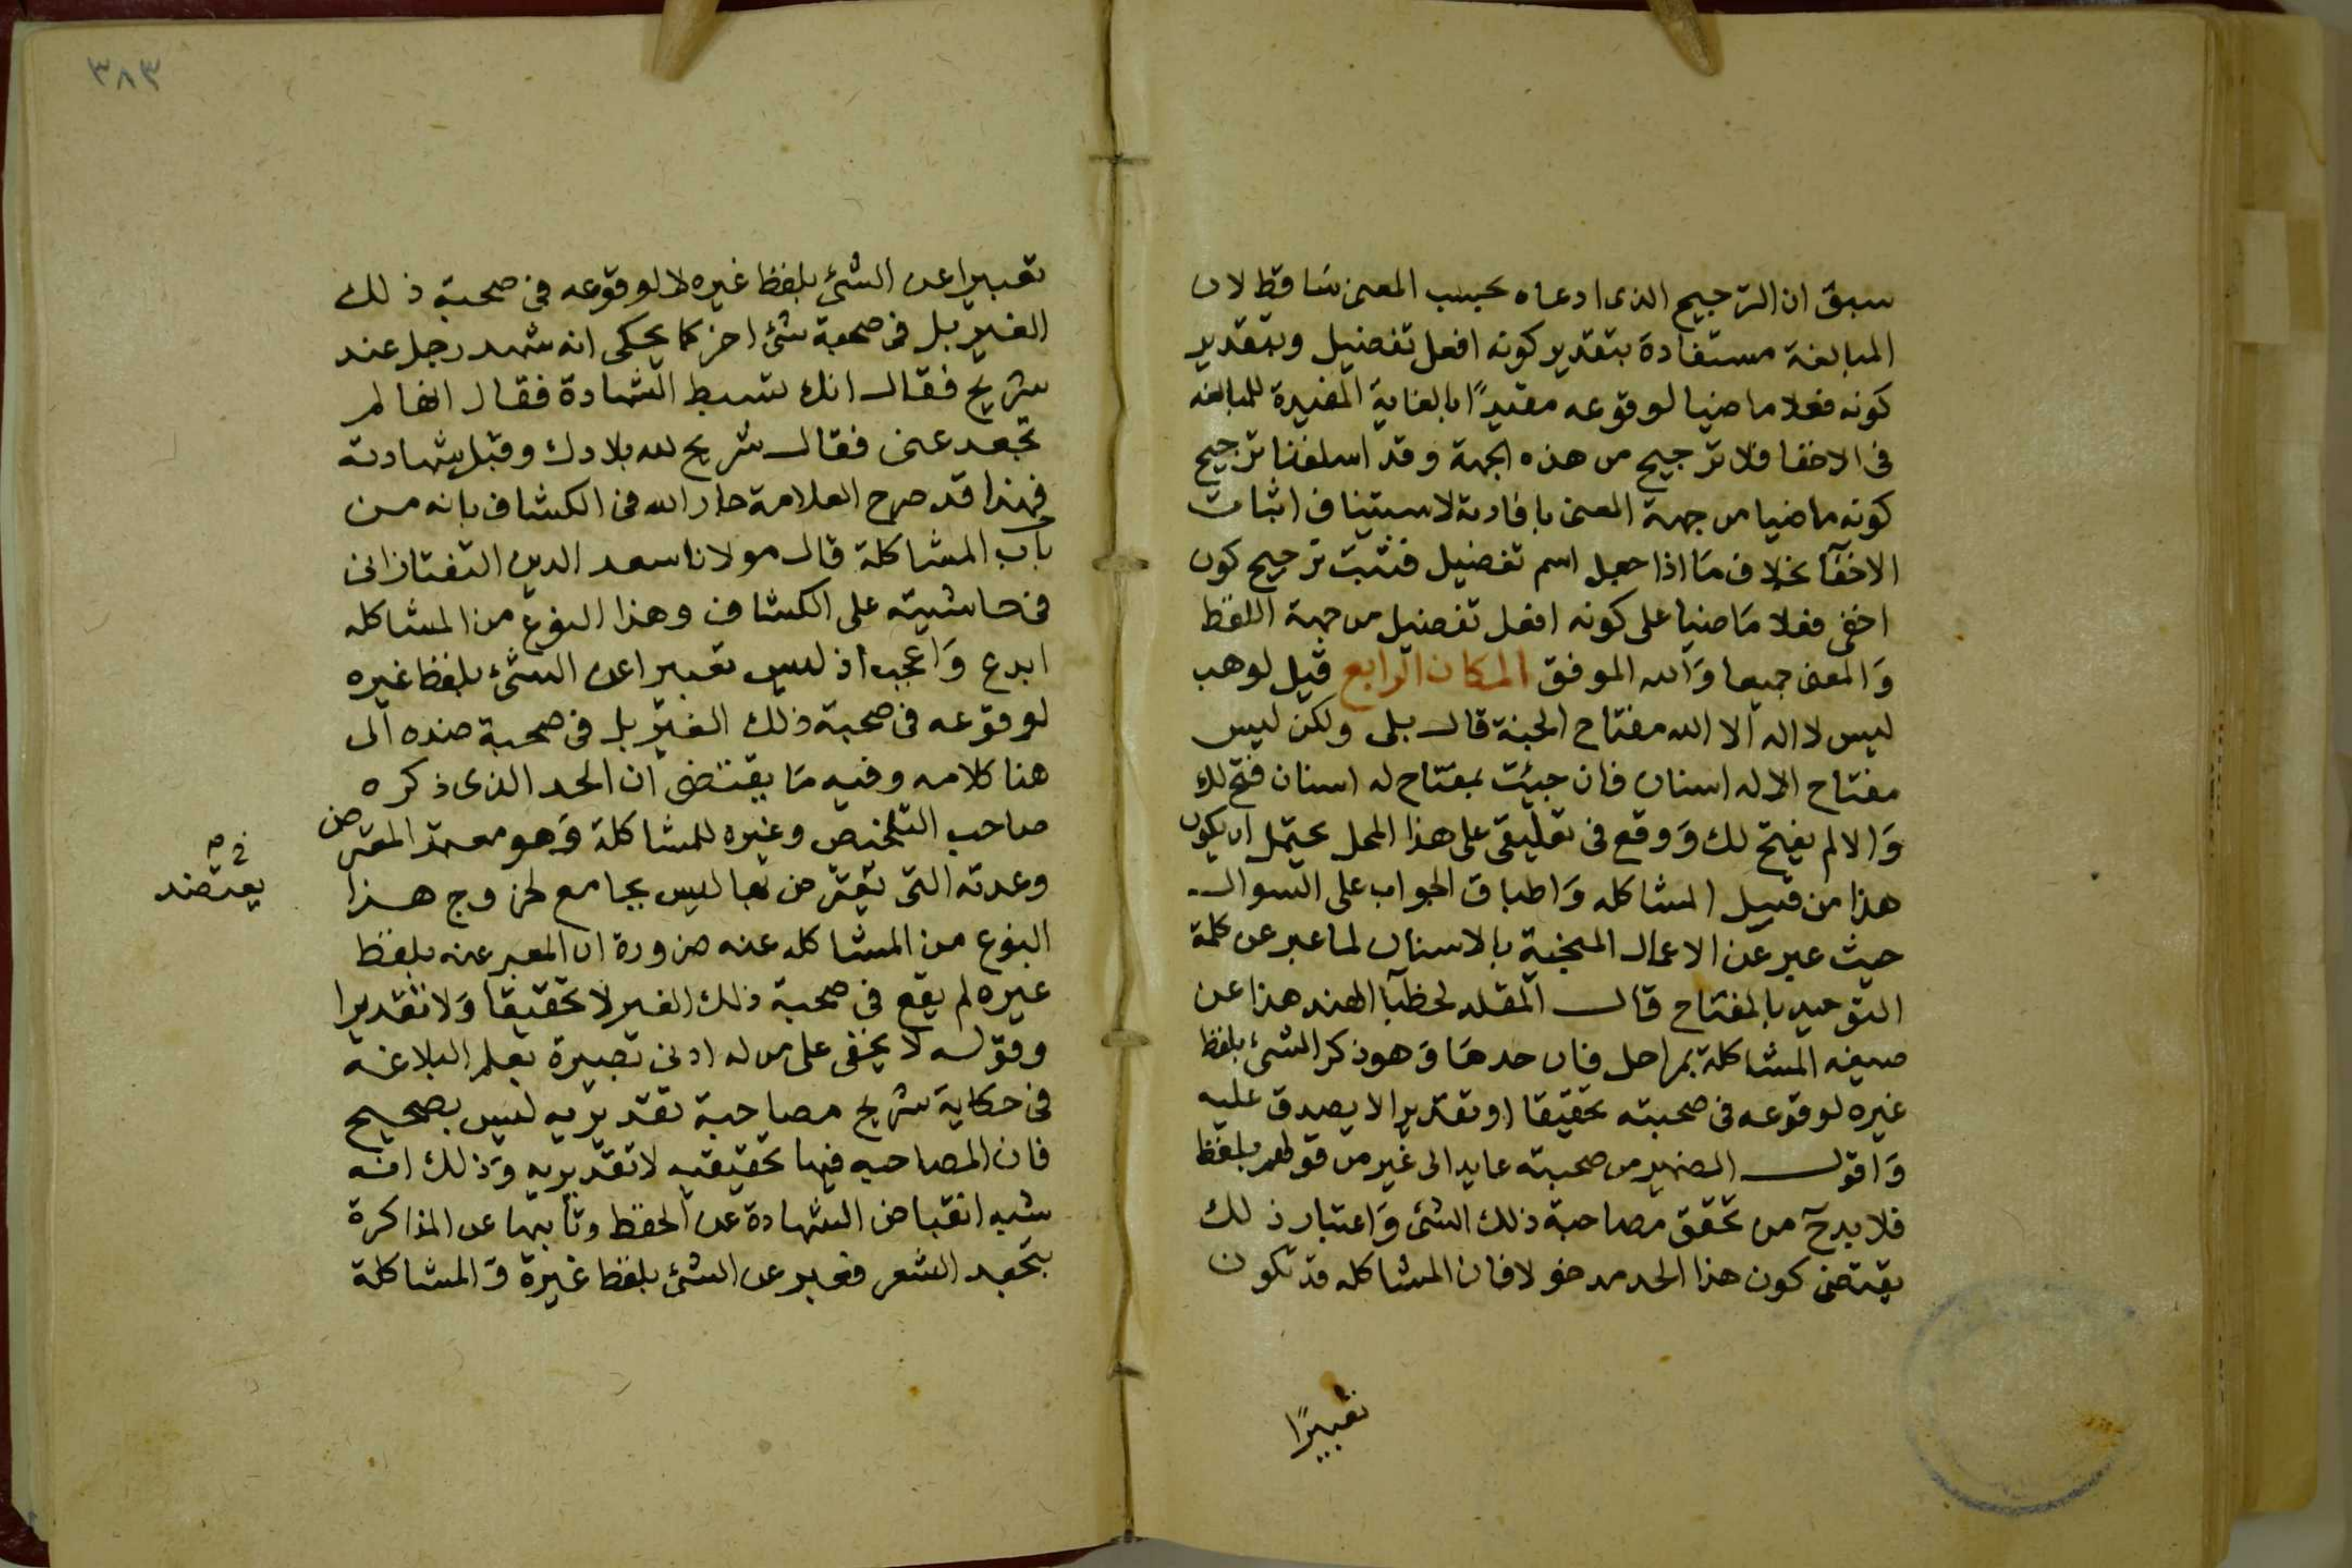 سبق ان الترجيح الذى ادعاه بحسب المعنى سَاقط لان
المبالغة مستفادة بتقدير كونه افعل تفضيل وبتقدير
كونه فعلا ماضيا لوقوعه مقيدًا بالغاية المفيدة للمبالغه
فى الاخفا فلا ترجيح من هذه الجهة وقد اسلفنا ترجيح
كونه ماضيا من جهة المعنى بافادته لاستيناف اثبات
الاخفآ بخلاف مَا اذا جعل اسم تفضيل فثبت ترجيح كون
اخفى فعلا مَاضيا على كونه افعل تفضيل من جهة اللفظ
وَالمعنى جميعا وَالله الموفق المكان الرابع قيل لوهب
ليس لا اله الا الله مفتاح الجنة قال بلى ولكن ليس
مفتاح الا له اسنان فان جيئت بمفتاح له اسنان فتح لك
وَالا لم يفتح لك وَوقع فى تعليقى على هذا المحل يحتمل ان يكون
هذا من قبيل المشاكله وَاطباق الجواب على السوال
حيث عبر عن الاعمال المنجية بالاسنان لما عبر عن كلمة
التوحيد بالمفتاح قال المقلد لخطبآ الهند هذا عن
صيغه المشاكلة بمراحل فان حدهَا وَهو ذكر الشئ بلفظ
غيره لوقوعه فى صحبته تحقيقا او تقديرا لا يصدق عليه
وَاقول الضمير من صحبته عايد الى غير من قولهم بلفظ
فلا بدح من تحقق مصاحبة ذلك الشئ وَاعتبار ذلك
يقتضى كون هذا الحد مدخولا فان المشاكله قد تكون
تعبيرًا
٣٨٣
تعبيرا عن الشئ بلفظ غيره لا لوقوعه فى صحبة ذلك
الغير بل فى صحبة شئ اخر كما يحكى انه شهد رجل عند
شريح فقال انك لسبط الشهادة فقال انها لم
تجعد عنى فقال شريح لله بلادك وقبل شهادته
فهذا قد صرح العلامة جار الله فى الكشاف بانه من
باب المشاكلة قال مولانا سعد الدين التفتازانى
فى حاشيته على الكشاف وهذا النوع من المشاكله
ابدع وَاعجب اذ ليس تعبيرا عن الشئ بلفظ غيره
لوقوعه فى صحبة ذلك الغير بل فى صحبة ضده الى
هنا كلامه وفيه مَا يقتضى ان الحد الذى ذكره
صاحب التلخيص وغيره للمشاكلة وَهو معمد المعترض
وعدته التى يعترض بها ليس بجامع لخروج هذا
يعتضد
النوع من المشاكله عنه ضرورة ان المعبر عنه بلفظ
غيره لم يقع فى صحبة ذلك الغير لا تحقيقا وَلا تقديرا
وقوله لا يخفى على من له ادنى تبصرة بعلم البلاغه
فى حكاية شريح مصاحبة تقديريه ليس بصحيح
فان المصاحبه فيها تحقيقيه لا تقديريه وَذلك انه
شبه انقباض الشهادة عن الحفظ وتأبيها عن المذاكرة
بتجعد الشعر فعبر عن الشئ بلفظ غيرة وَالمشاكلة